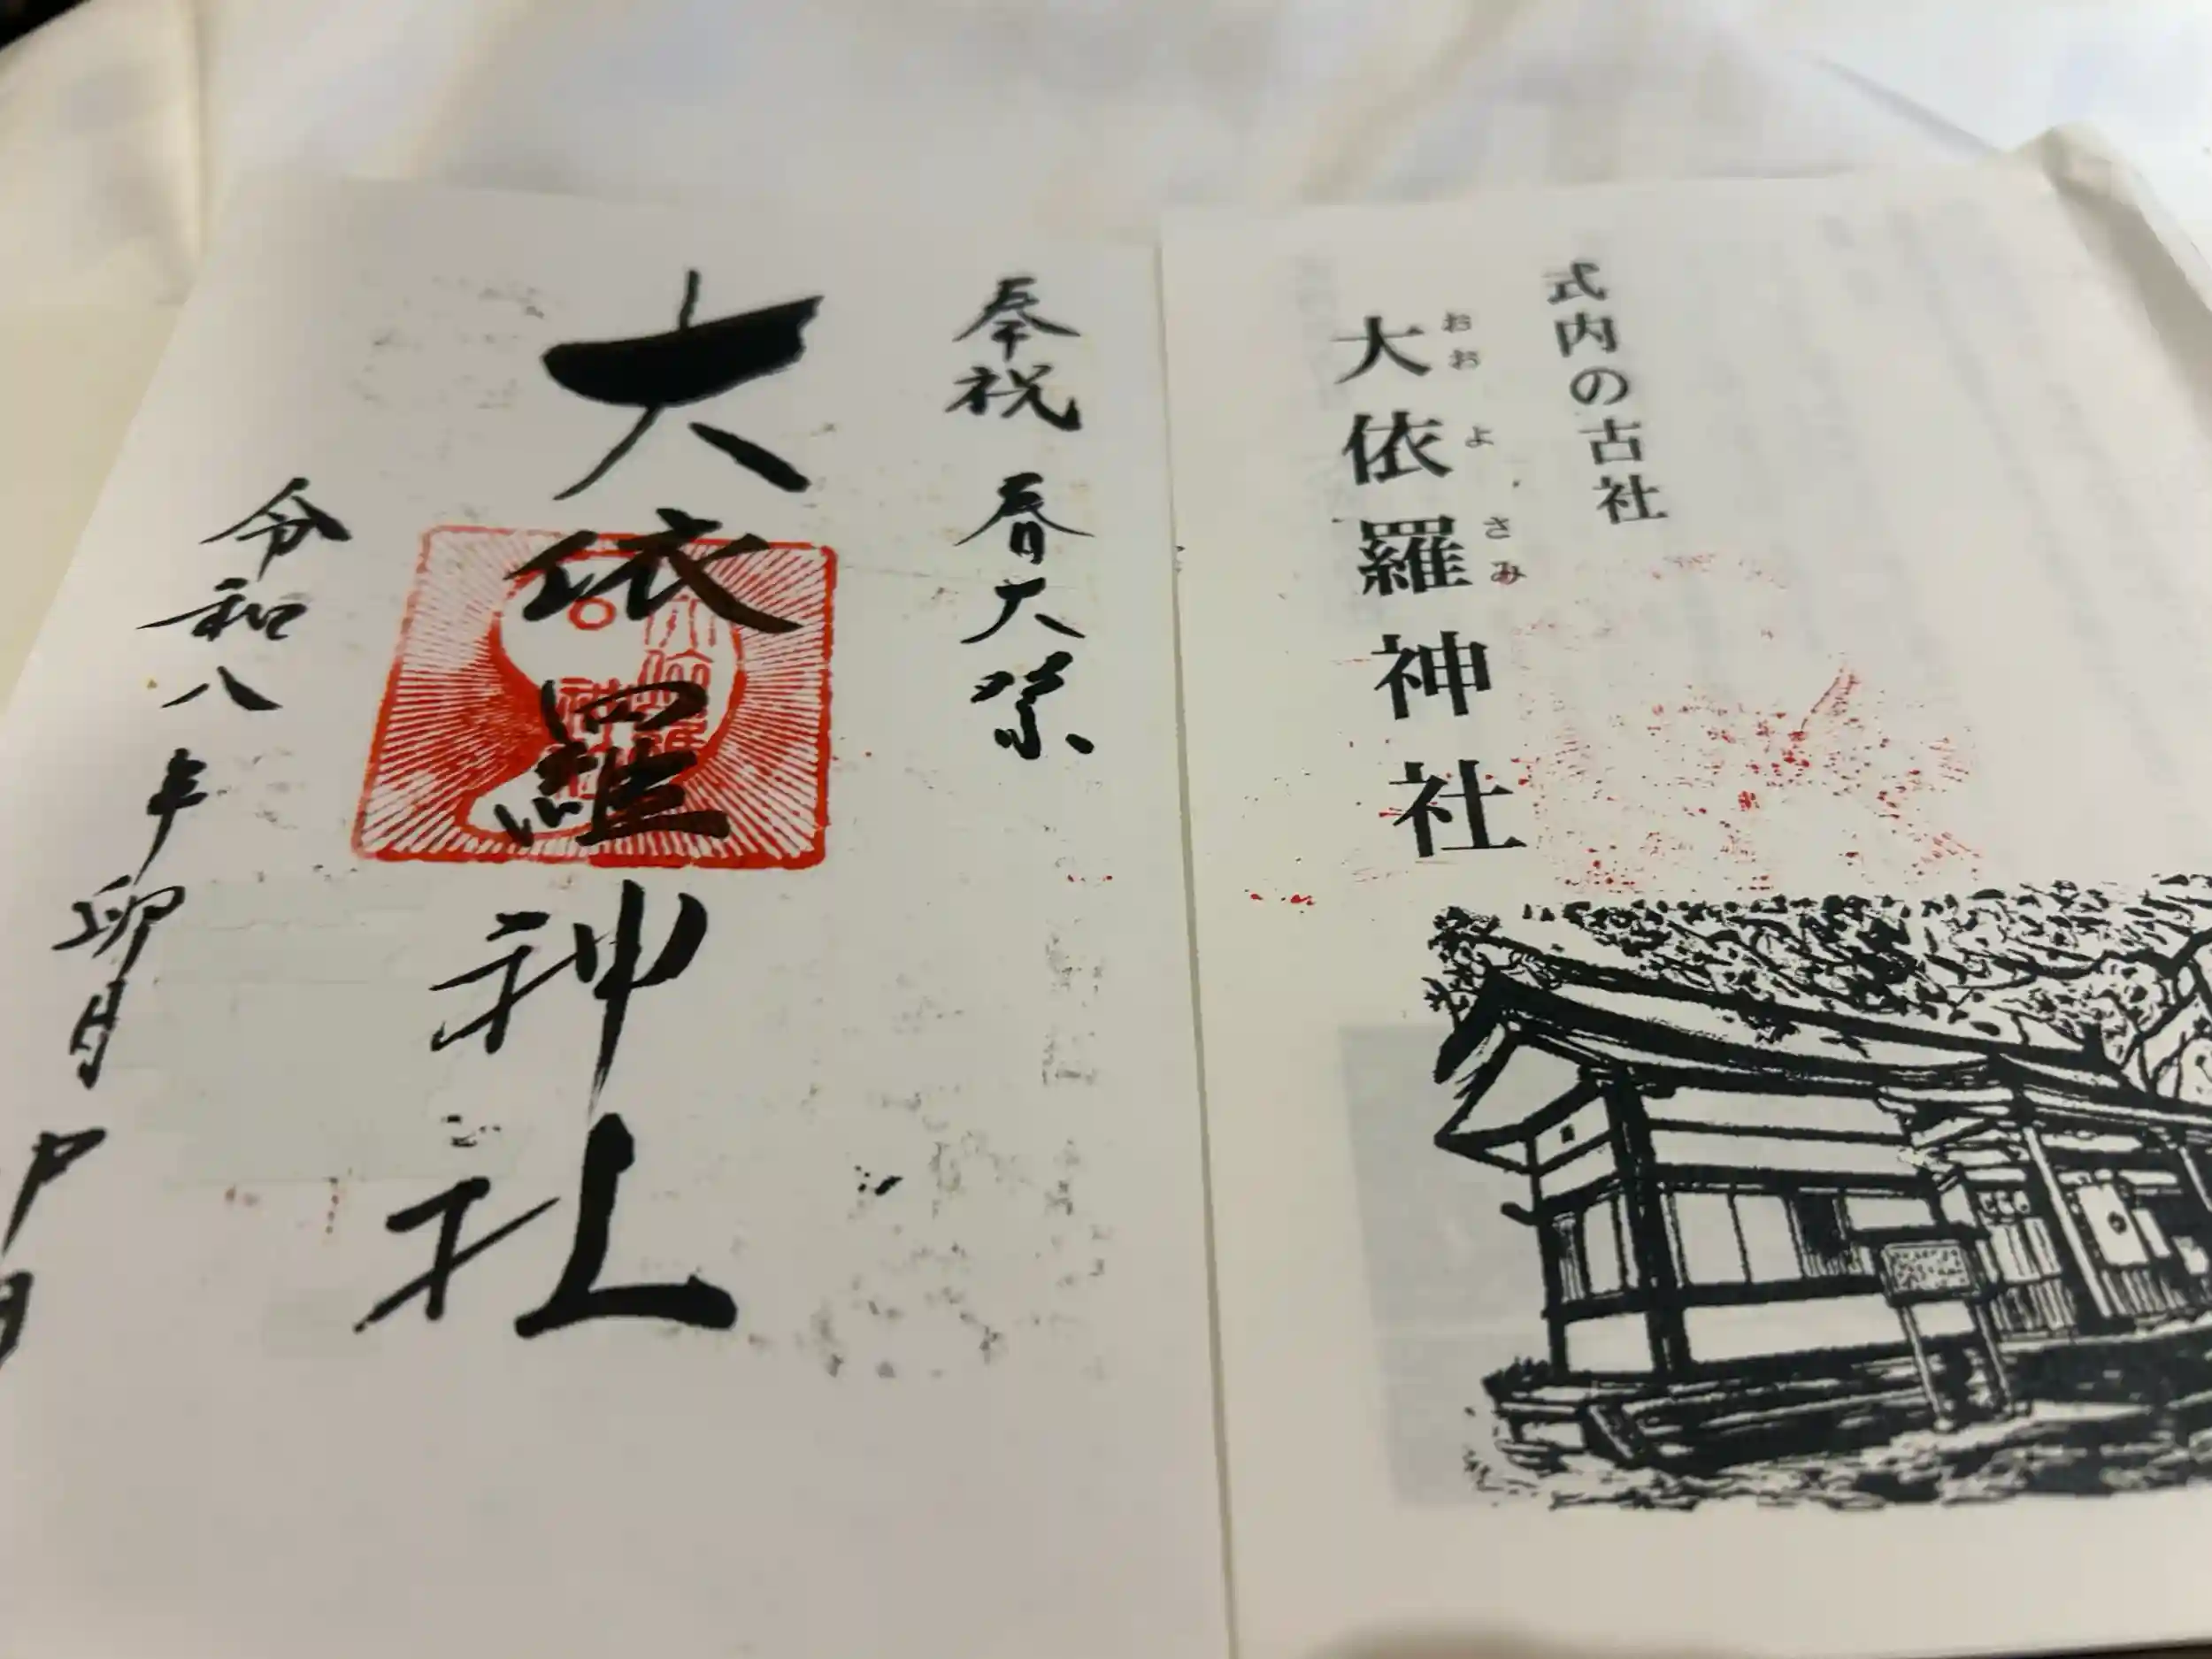 式内の古社
おおよさみ
大依羅神社
奉祝 春大祭
大依羅神社
令和八年卯月